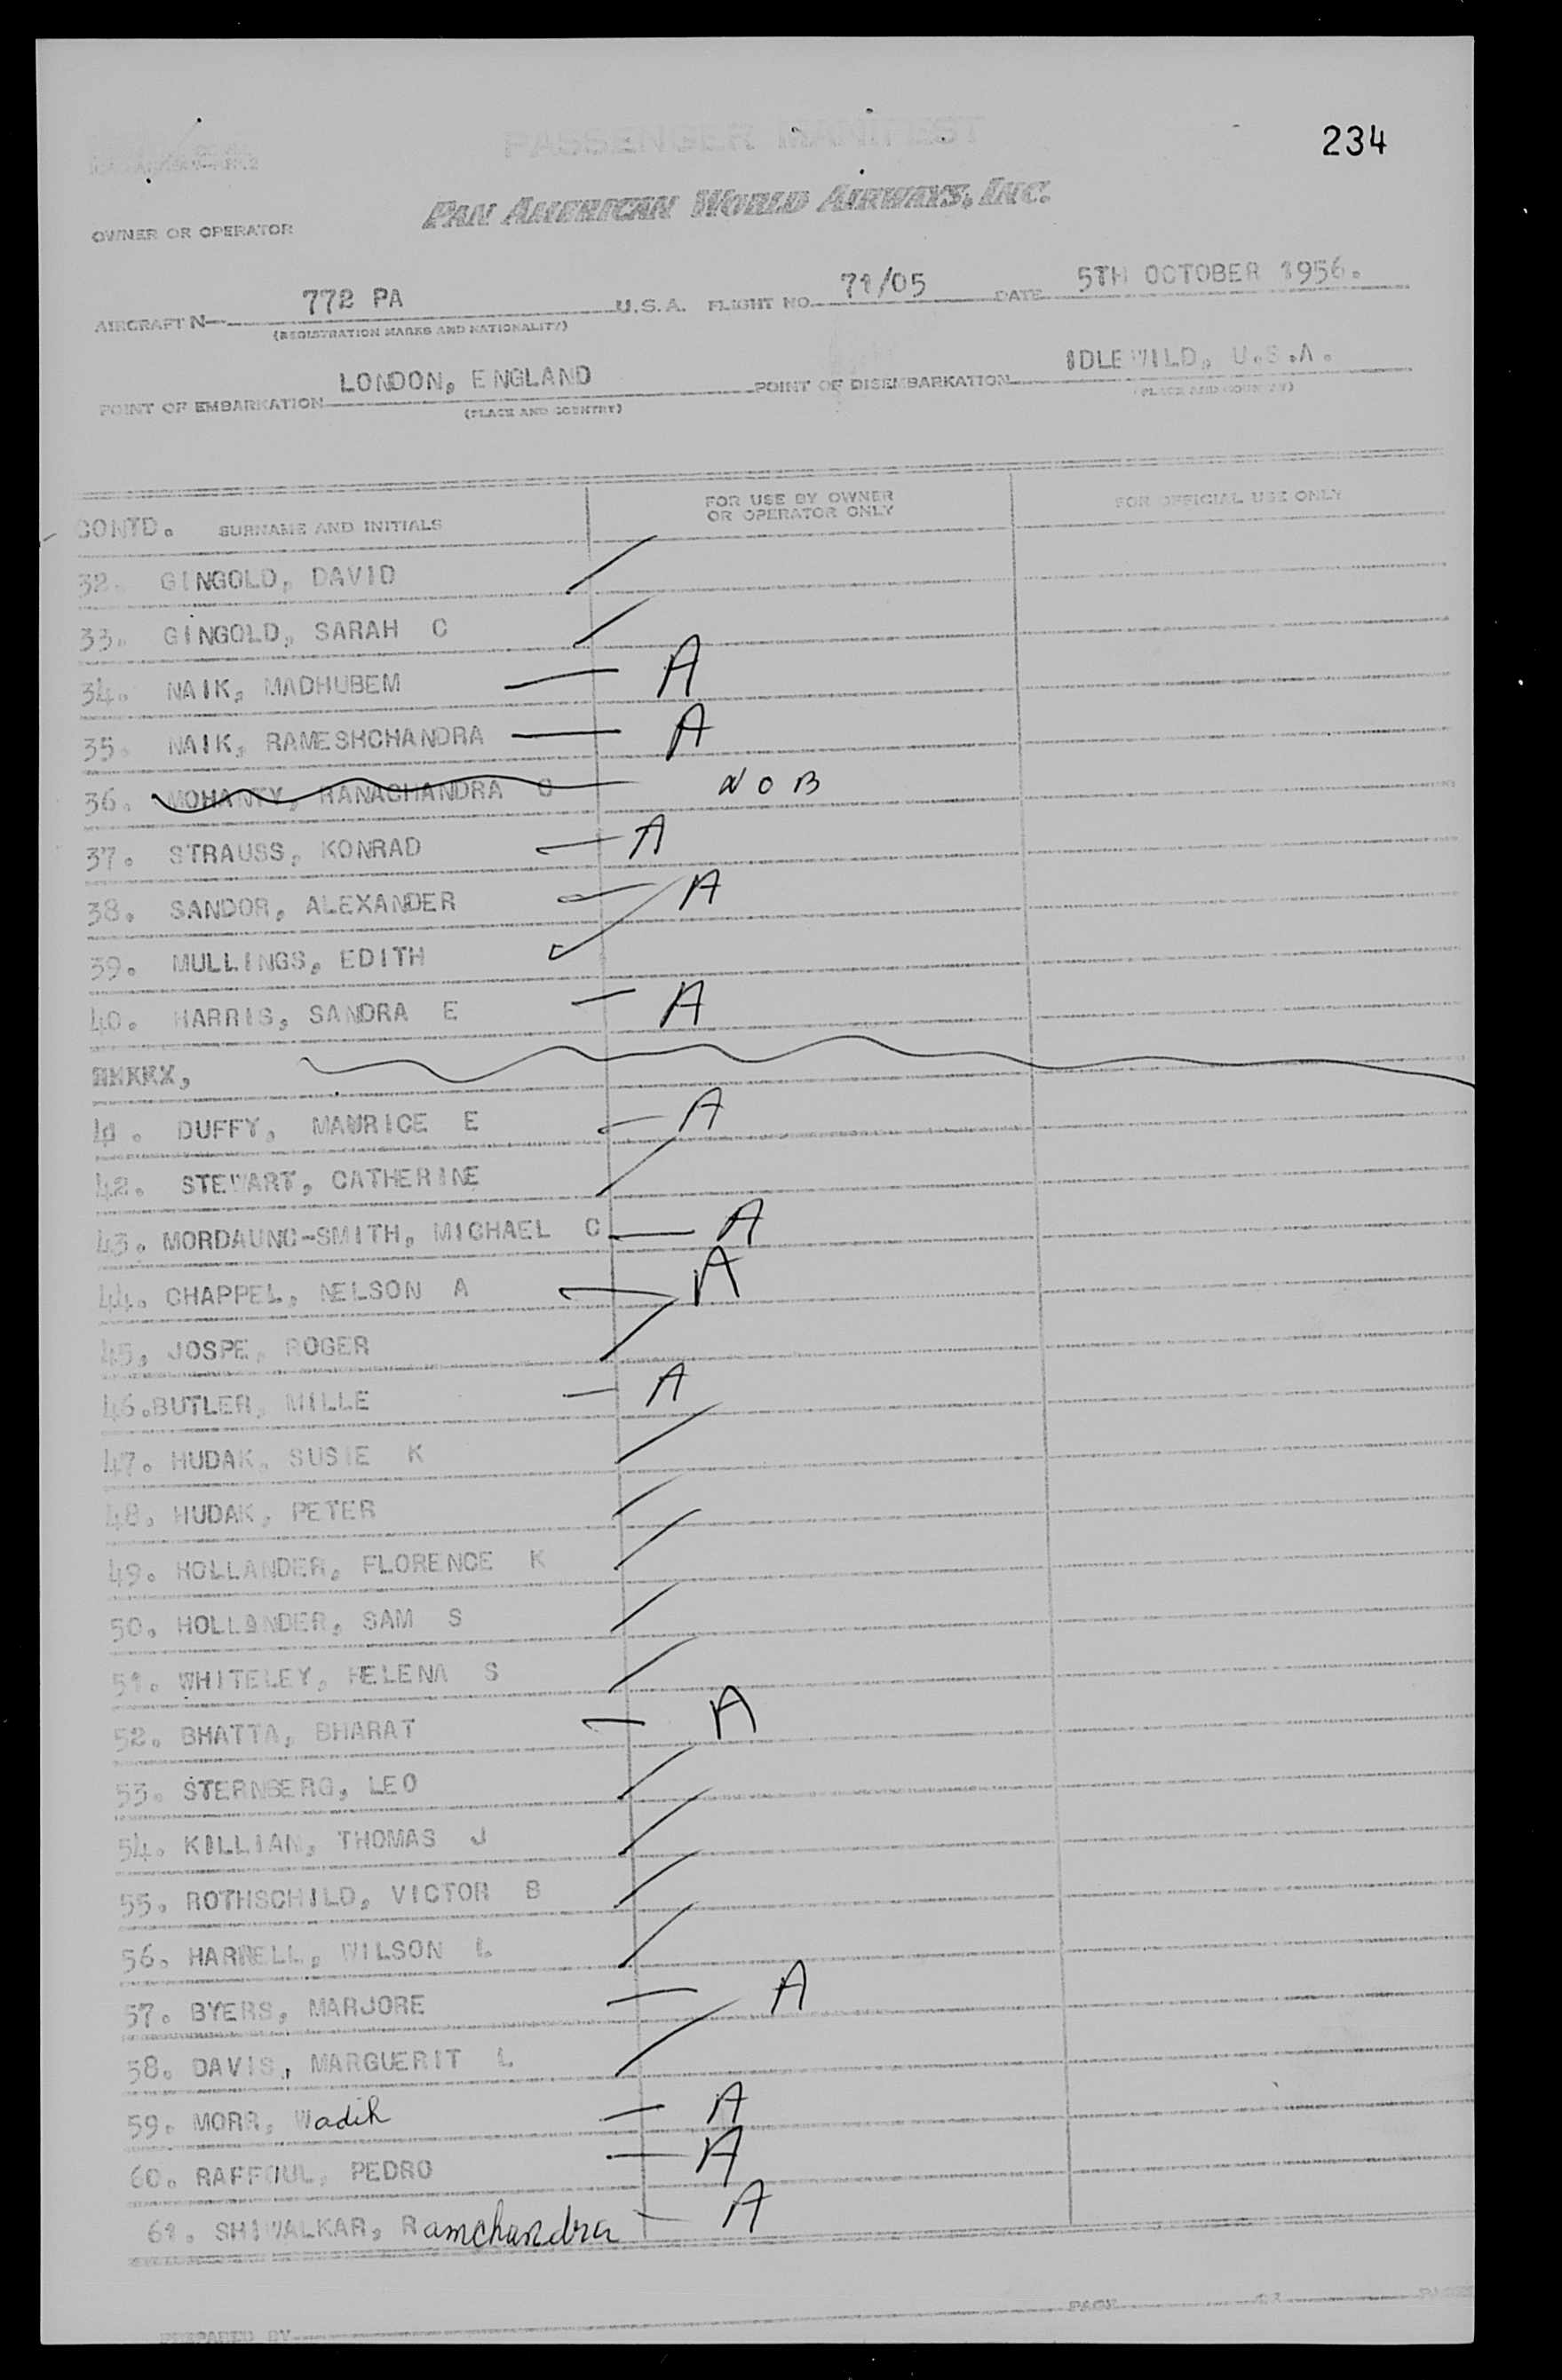 PASSENGER MANIFEST
234
PAN AMERICAN WORLD AIRWAYS, INC.
OWNER OR OPERATOR
AIRCRAFT N— 772 PA U.S.A. FLIGHT NO. 71/05 DATE 5TH OCTOBER 1956.
(REGISTRATION MARKS AND NATIONALITY)
POINT OF EMBARKATION LONDON, ENGLAND POINT OF DISEMBARKATION IDLEWILD, U.S.A.
(PLACE AND COUNTRY) (PLACE AND COUNTRY)
CONTD. SURNAME AND INITIALS FOR USE BY OWNER OR OPERATOR ONLY FOR OFFICIAL USE ONLY
32. GINGOLD, DAVID
33. GINGOLD, SARAH C
34. NAIK, MADHUBEM — A
35. NAIK, RAMESHCHANDRA — A
36. MOHANTY, RANACHANDRA C N O B
37. STRAUSS, KONRAD — A
38. SANDOR, ALEXANDER — A
39. MULLINGS, EDITH
40. HARRIS, SANDRA E — A
41. DUFFY, MAURICE E — A
42. STEWART, CATHERINE
43. MORDAUNC-SMITH, MICHAEL C — A
44. CHAPPEL, NELSON A — A
45. JOSPE, ROGER
46. BUTLER, MILLE — A
47. HUDAK, SUSIE K
48. HUDAK, PETER
49. HOLLANDER, FLORENCE K
50. HOLLANDER, SAM S
51. WHITELEY, HELENA S
52. BHATTA, BHARAT — A
53. STERNBERG, LEO
54. KILLIAN, THOMAS J
55. ROTHSCHILD, VICTOR B
56. HARRELL, WILSON L
57. BYERS, MARJORE — A
58. DAVIS, MARGUERIT L
59. MORR, Wadih — A
60. RAFFOUL, PEDRO — A
61. SHIWALKAR, Ramchandra — A
PAGE PAGES
PREPARED BY